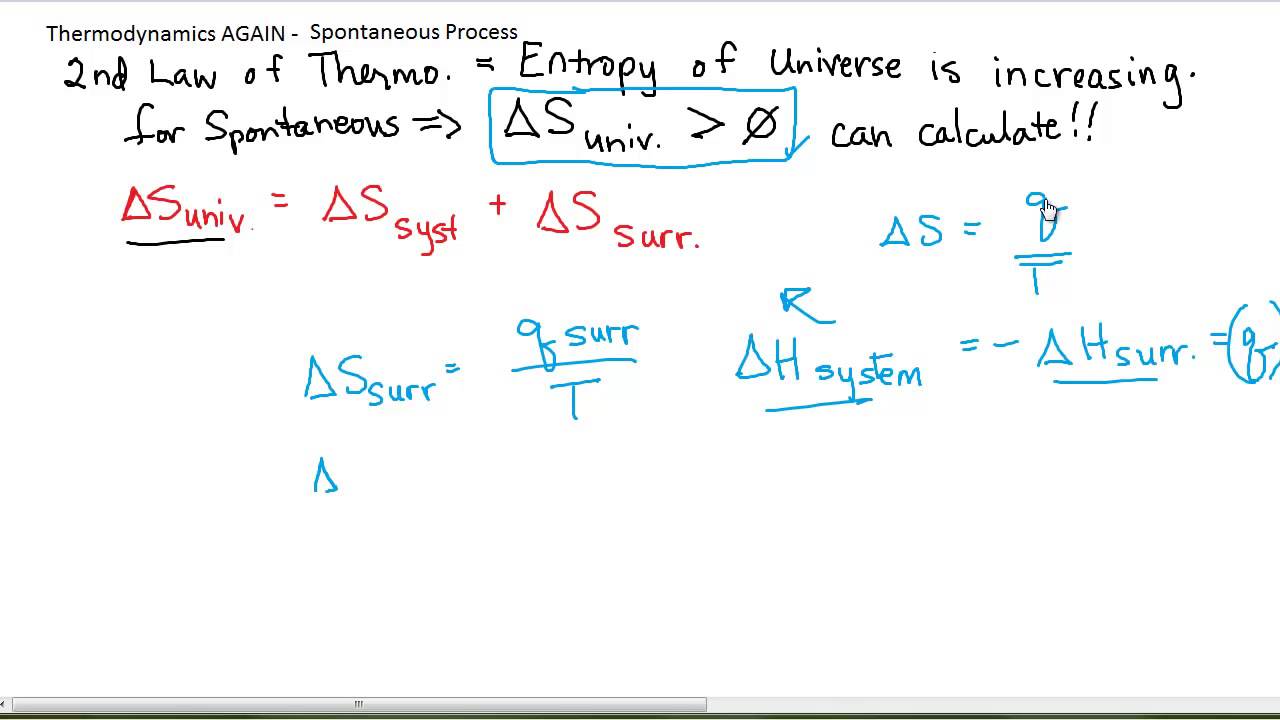 Thermodynamics AGAIN - Spontaneous Process
2nd Law of Thermo. = Entropy of Universe is increasing.
for Spontaneous => ΔS univ. > Ø can calculate!!
ΔS univ. = ΔS syst + ΔS surr.
ΔS = q / T
ΔS surr = q surr / T
ΔH system = - ΔH surr. = (q)
Δ